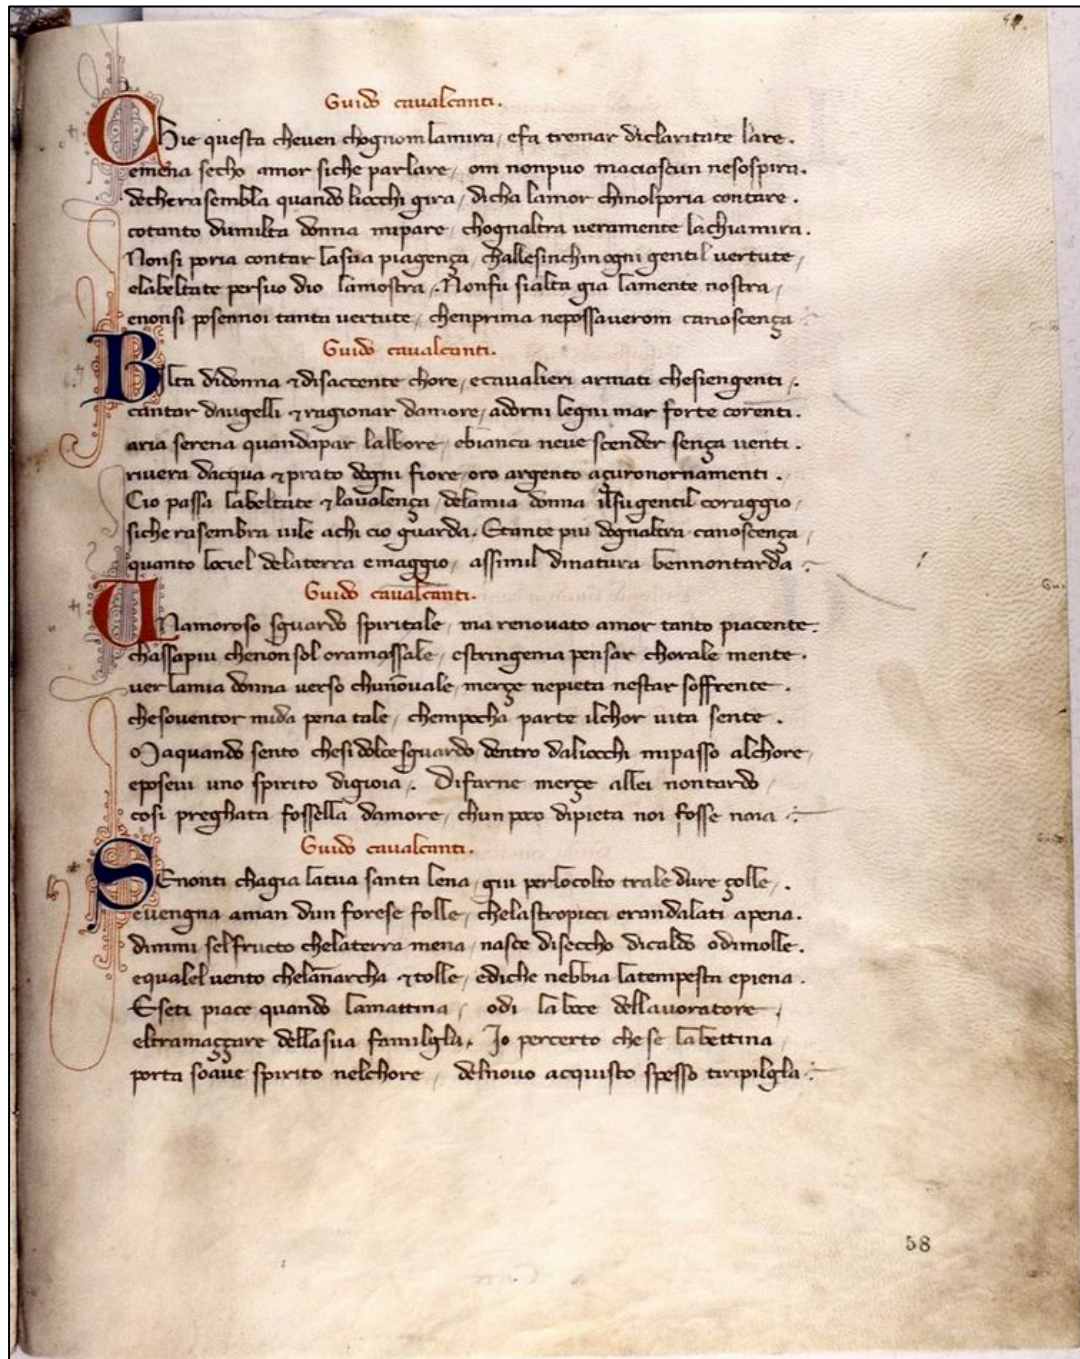 Guido cavalcanti.
Chie questa cheven chognom lamira / efa tremar diclaritate lare.
emena secho amor siche parlare / om nonpuo maciascun nesospira.
decherasembla quando liocchi gira / dicha lamor chinolporia contare.
cotanto dumilta donna mipare / chognaltra ueramente lachiamira.
Nonsi poria contar lasua piagença / challesinchin ogni gentil vertute /
elabeltate persuo dio lamostra /. Nonfu sialta gia lamente nostra /
enonsi posennoi tanta vertute / chenprima nepossauerom canoscença
Guido cavalcanti.
Bilta didonna & disaccente chore / ecavalieri armati chesiengenti /.
cantar daugelli & ragionar damore / adorni legni mar forte corenti.
aria serena quandapar lalbore / ebianca neve scender sença venti.
rivera dacqua & prato dogni fiore / oro argento açuronornamenti.
Cio passa labeltate & lavalença / delamia donna ilsugentil coraggio /
siche rasembra vile achi cio guarda. Etante piu dognaltra canoscença /
quanto lociel delaterra emaggio / assimil dinatura bennontarda
Guido cavalcanti.
UNamoroso sguardo spiritale / ma renovato amor tanto piacente.
chassapiu chenon sol oramassale / estringema pensar chorale mente.
ver lamia donna verso chunōuale / merçe nepieta nestar soffrente.
chesoventor mida pena tale / chempocha parte ilchor vita sente.
Maquando sento chesi dolcesguardo / dentro daliocchi mipasso alchore /
eposeui uno spirito digioia /. Difarne merçe allei nontardo /
cosi preghata fossella damore / chun poco dipieta noi fosse noia
Guido cavalcanti.
SEnonti chagia latua santa lena / giu perlocolto trale dure çolle /.
evengna aman dun forese folle / chelastropicci erandalati apena.
dimmi selfructo chelaterra mena / nasce disecho dicaldo odimolle.
equalel vento chelānarcha & tolle / ediche nebbia latempesta epiena.
Eseti piace quando lamattina / odi laboce dellavoratore /
eltramaççare dellasua familgla. Io percerto chese labettina /
porta soave spirito nelchore / delnovo acquisto spesso tiripilgla
58